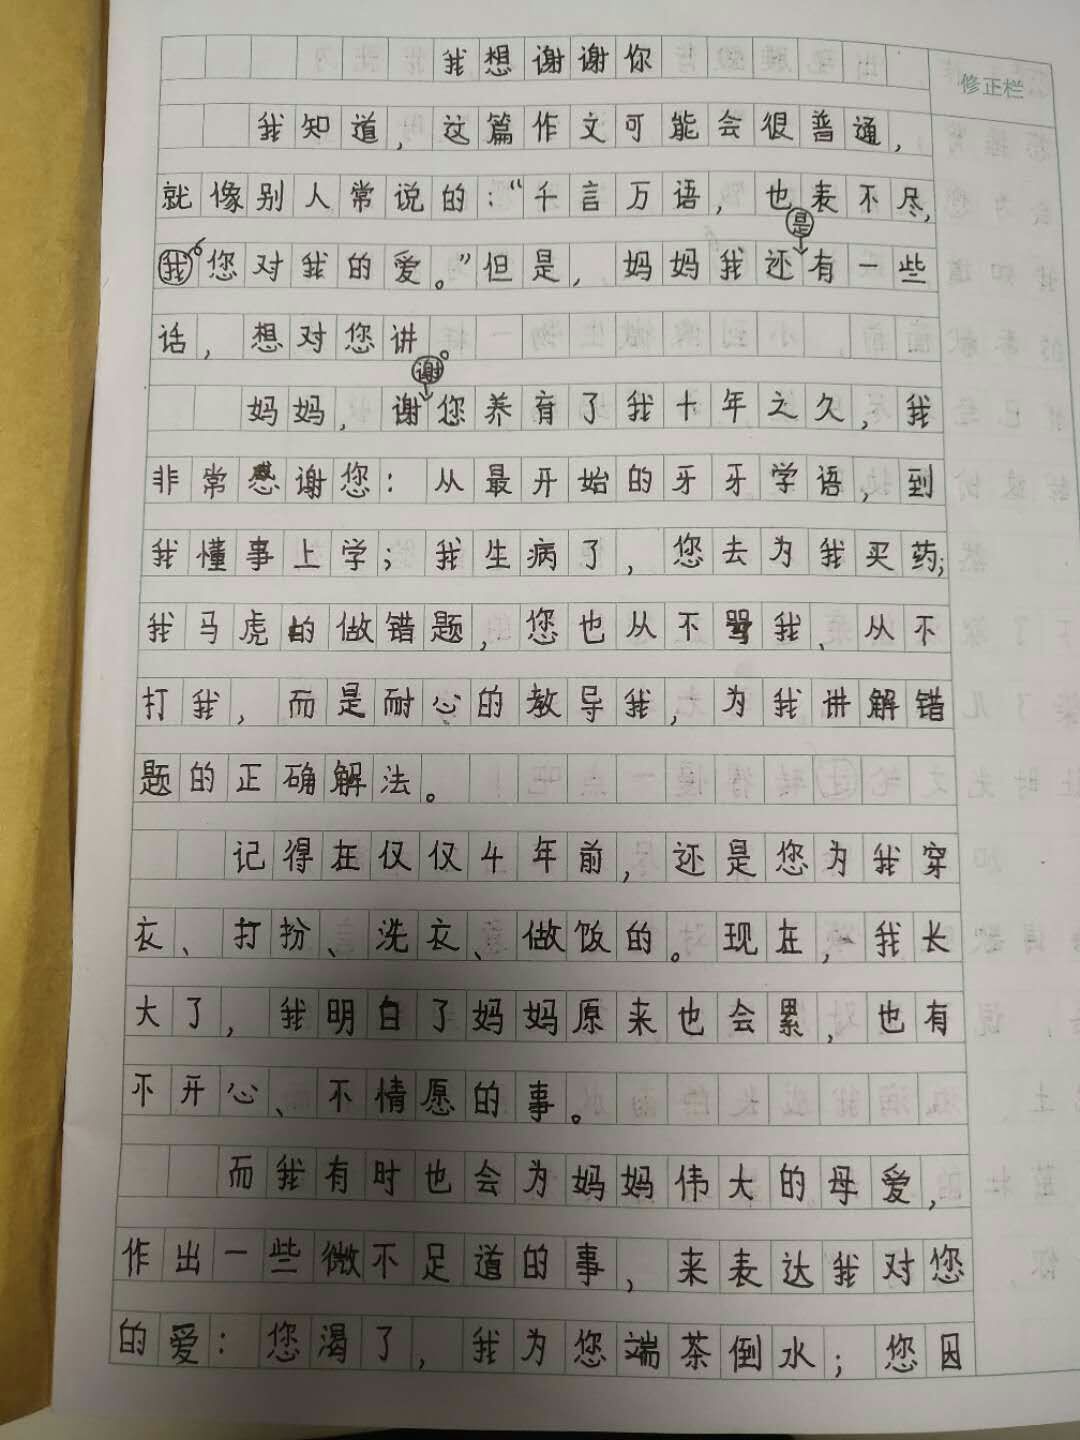 我想谢谢你
修正栏
我知道，这篇作文可能会很普通，
就像别人常说的：“千言万语，也表不尽，
是
我您对我的爱。”但是，妈妈我还有一些
话，想对您讲。
谢
妈妈，谢您养育了我十年之久，我
非常感谢您：从最开始的牙牙学语，到
我懂事上学；我生病了，您去为我买药；
我马虎的做错题，您也从不骂我、从不
打我，而是耐心的教导我，为我讲解错
题的正确解法。
记得在仅仅4年前，还是您为我穿
衣、打扮、洗衣、做饭的。现在，我长
大了，我明白了妈妈原来也会累，也有
不开心、不情愿的事。
而我有时也会为妈妈伟大的母爱，
作出一些微不足道的事，来表达我对您
的爱：您渴了，我为您端茶倒水；您因